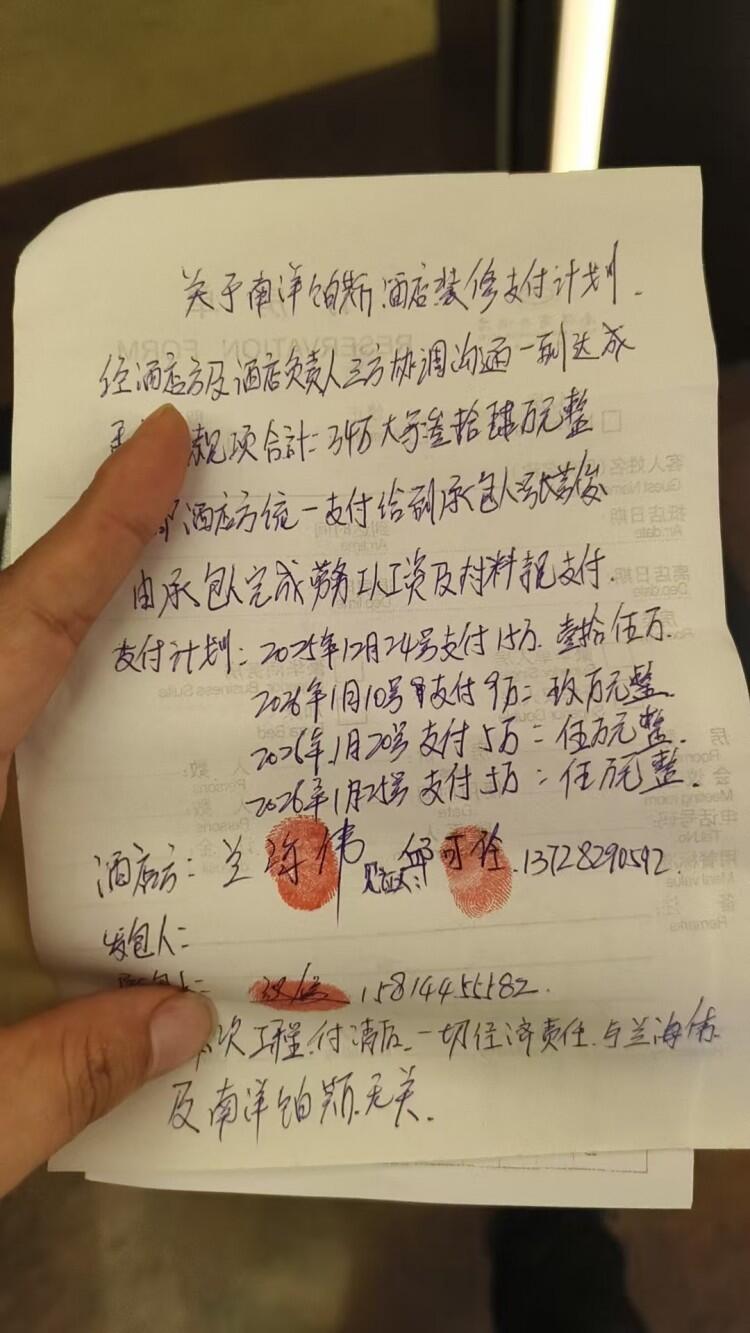 关于南洋铂斯酒店装修支付计划.
经酒店方及酒店负责人三方协调沟通一到达成
款项合计:34万大写叁拾肆万元整
酒店方统一支付给到承包人张
由承包人完成劳务工人工资及材料款支付.
支付计划:2025年12月24号支付15万.壹拾伍万.
2026年1月10号支付9万:玖万元整.
2026年1月20号支付5万:伍万元整.
2026年1月25号支付5万:伍万元整.
酒店方:兰海伟 见证人: 13728290592.
发包人:
15814455582.
次工程.付清后.一切经济责任.与兰海伟
及南洋铂斯.无关.
RESERVATION FORM
客人姓名
Guest Name
抵店日期
Arr.date
离店日期
Dep.date
Business Suite
人 数:
Persons
房
Room
会
Meeting room
电话号码:
Tel.No
Meal value
备 注:
Remarks